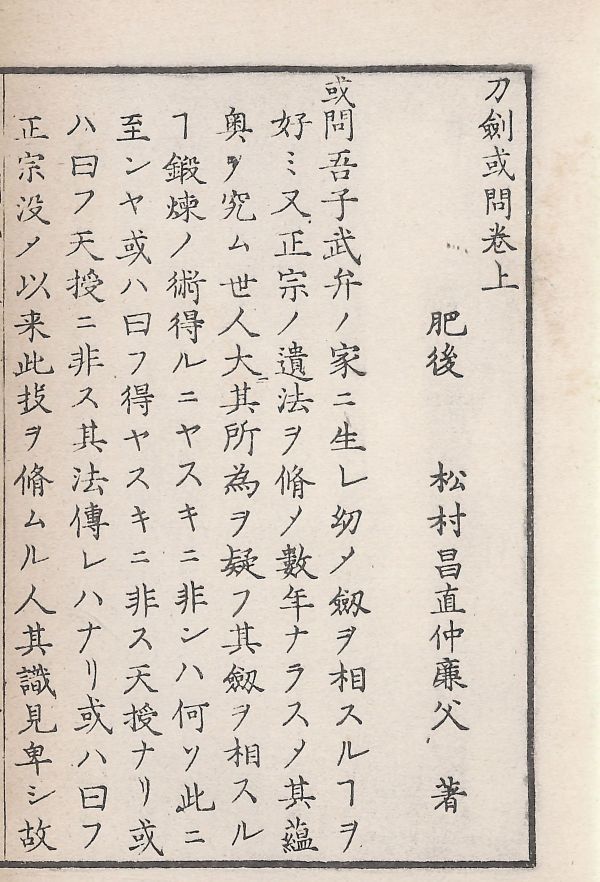 刀劍或問卷上
肥後 松村昌直仲廉父 著
或問吾子武弁ノ家ニ生レ幼〆劔ヲ相スルヿヲ
好ミ又正宗ノ遺法ヲ脩メ數年ナラス〆其蘊
奥ヲ究ム世人大ニ其所為ヲ疑フ其劔ヲ相スル
ヿ鍛煉ノ術得ルニヤスキニ非ンハ何ソ此ニ
至ンヤ或ハ曰フ得ヤスキニ非ス天授ナリ或
ハ曰フ天授ニ非ス其法傳レハナリ或ハ曰フ
正宗没〆以来此技ヲ脩ムル人其識見卑シ故